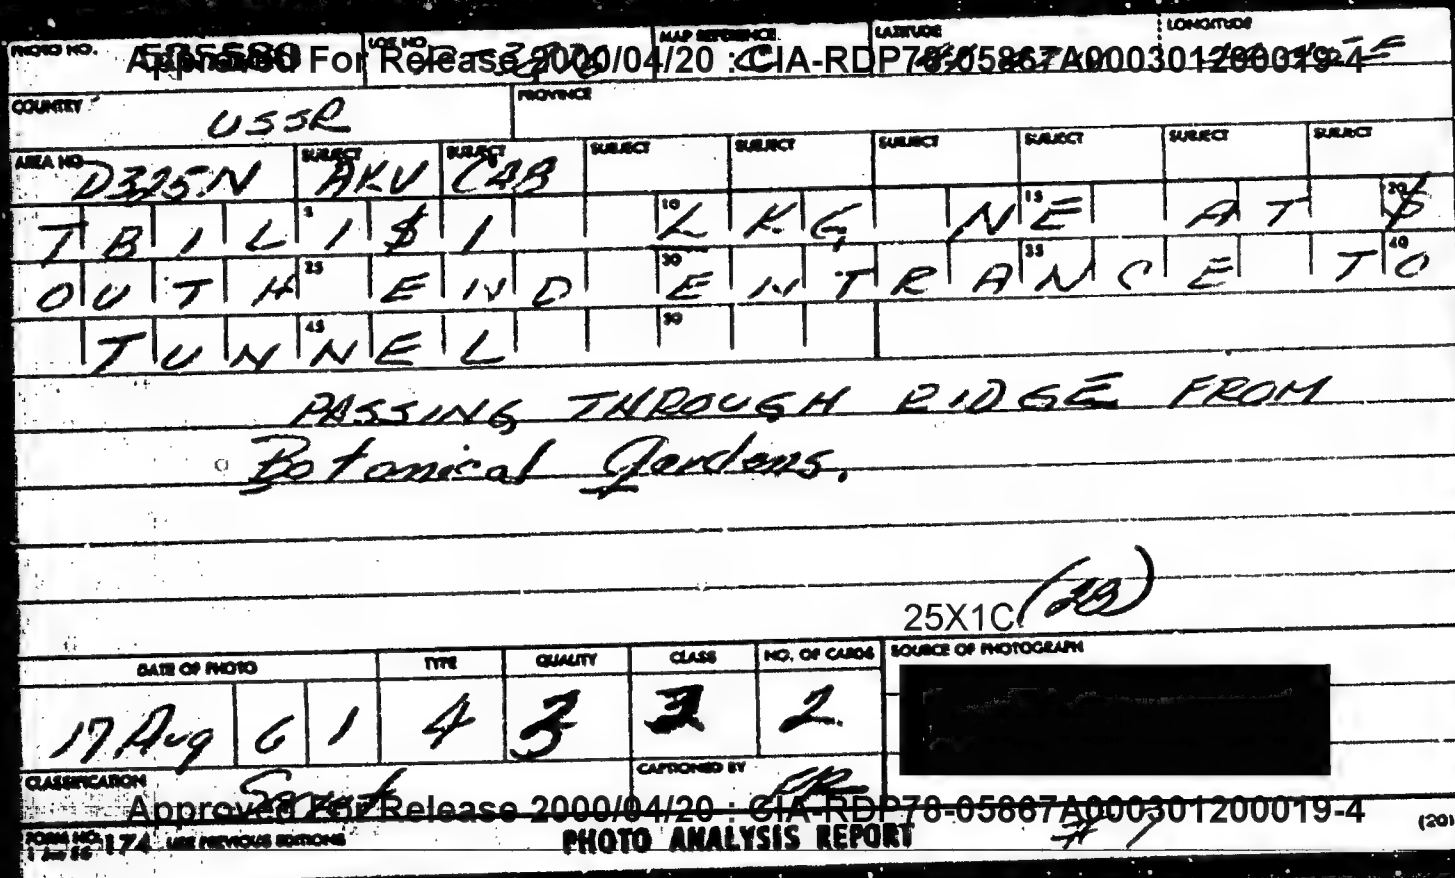 PHOTO NO. LOC NO. MAP REFERENCE. LATITUDE LONGITUDE
Approved For Release 2000/04/20 : CIA-RDP78-05867A000301200019-4
COUNTRY USSR PROVINCE
AREA NO. D325N SUBJECT AKV SUBJECT CAB SUBJECT SUBJECT SUBJECT SUBJECT SUBJECT SUBJECT
TBILI$I LKG NE AT $
OUTH END ENTRANCE TO
TUNNEL
PASSING THROUGH RIDGE FROM
Botanical Gardens.
25X1C (28)
DATE OF PHOTO TYPE QUALITY CLASS NO. OF CARDS SOURCE OF PHOTOGRAPH
17 Aug 61 4 3 3 2
CLASSIFICATION Secret CAPTIONED BY
Approved For Release 2000/04/20 : CIA-RDP78-05867A000301200019-4
FORM NO. 174 USE PREVIOUS EDITIONS PHOTO ANALYSIS REPORT # 1 (20)
1 Jun 56